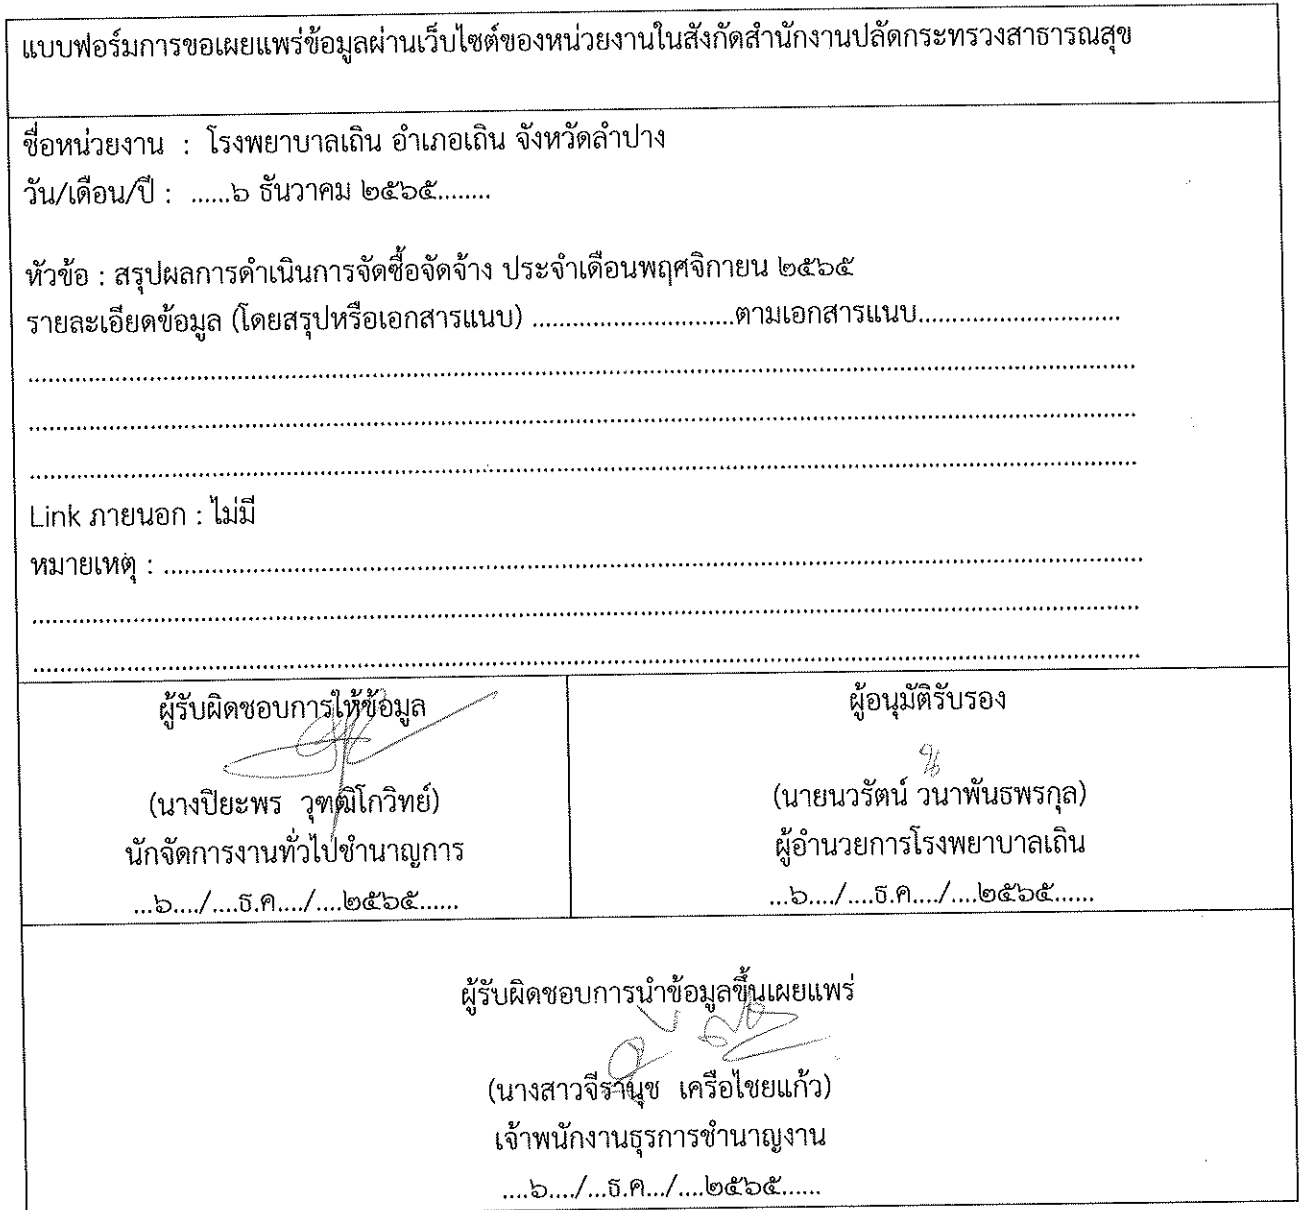 แบบฟอร์มการขอเผยแพร่ข้อมูลผ่านเว็บไซต์ของหน่วยงานในสังกัดสำนักงานปลัดกระทรวงสาธารณสุข
ชื่อหน่วยงาน : โรงพยาบาลเถิน อำเภอเถิน จังหวัดลำปาง
วัน/เดือน/ปี : ......๖ ธันวาคม ๒๕๖๕........
หัวข้อ : สรุปผลการดำเนินการจัดซื้อจัดจ้าง ประจำเดือนพฤศจิกายน ๒๕๖๕
รายละเอียดข้อมูล (โดยสรุปหรือเอกสารแนบ) ..............................ตามเอกสารแนบ..............................
Link ภายนอก : ไม่มี
หมายเหตุ : ....................................................................................
ผู้รับผิดชอบการให้ข้อมูล
(นางปิยะพร วุฑฒิโกวิทย์)
นักจัดการงานทั่วไปชำนาญการ
...๖..../....ธ.ค..../....๒๕๖๕......
ผู้อนุมัติรับรอง
(นายนวรัตน์ วนาพันธพรกุล)
ผู้อำนวยการโรงพยาบาลเถิน
...๖..../....ธ.ค..../....๒๕๖๕......
ผู้รับผิดชอบการนำข้อมูลขึ้นเผยแพร่
(นางสาวจีรานุช เครือไชยแก้ว)
เจ้าพนักงานธุรการชำนาญงาน
....๖..../...ธ.ค.../....๒๕๖๕......